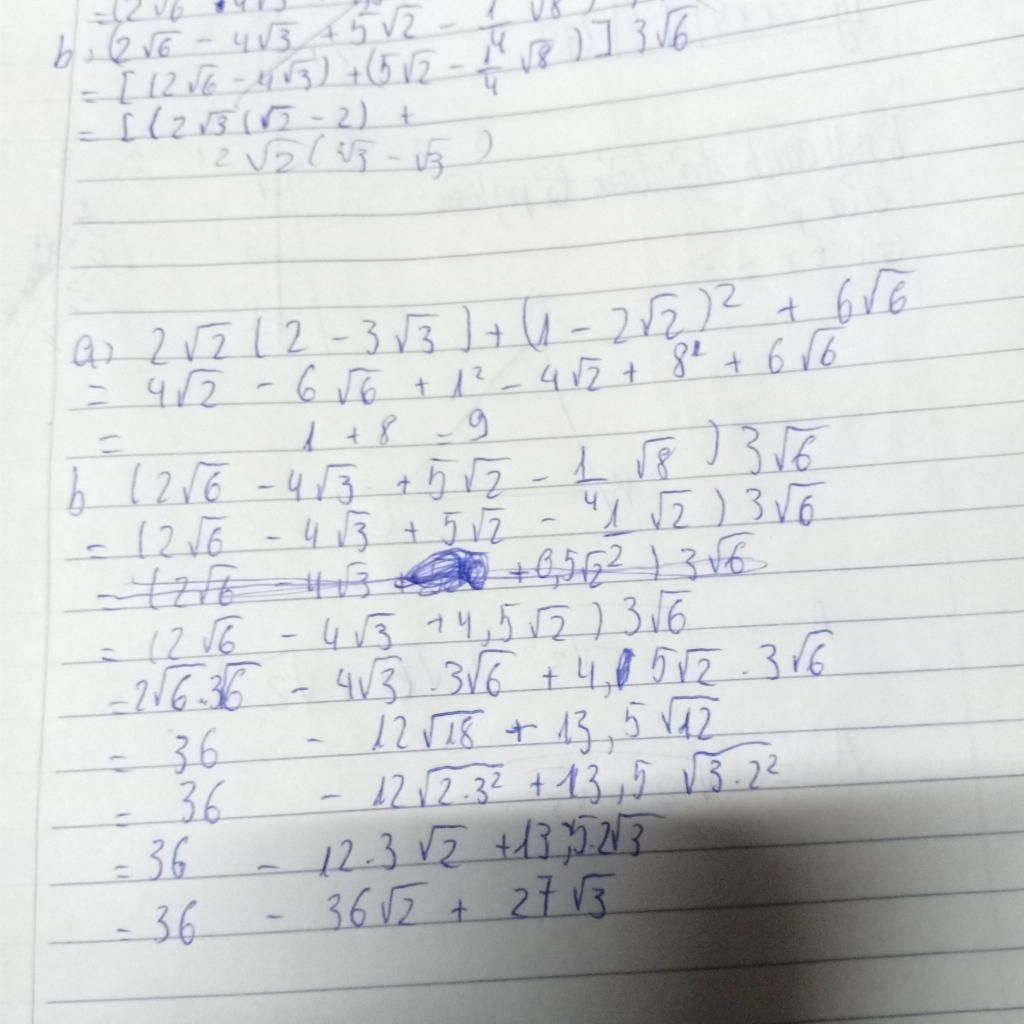 = (2√6
b, (2√6 - 4√3 + 5√2 - 1/4 √8 )] 3√6
= [(2√6 - 4√3) + (5√2 - 1/4 √8 )] 3√6
= [(2√3(√2 - 2) +
2√2(
a, 2√2 (2 - 3√3) + (1 - 2√2)² + 6√6
= 4√2 - 6√6 + 1² - 4√2 + 8 + 6√6
= 1 + 8 = 9
b (2√6 - 4√3 + 5√2 - 1/4 √8 ) 3√6
= (2√6 - 4√3 + 5√2 - 1 √2 ) 3√6
= (2√6 - 4√3 + 0,5√2² ) 3√6
= (2√6 - 4√3 + 4,5√2 ) 3√6
= 2√6.3√6 - 4√3 . 3√6 + 4,5√2 . 3√6
= 36 - 12√18 + 13,5√12
= 36 - 12√2.3² + 13,5 √3.2²
= 36 - 12.3√2 + 13,5.2√3
= 36 - 36√2 + 27√3